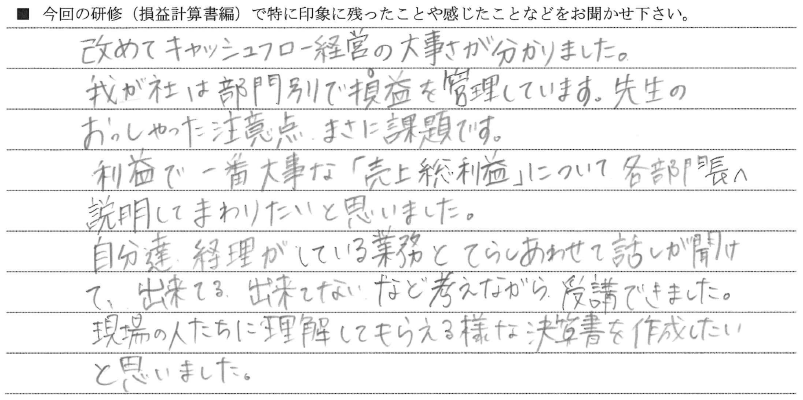 ■ 今回の研修（損益計算書編）で特に印象に残ったことや感じたことなどをお聞かせ下さい。
改めてキャッシュフロー経営の大事さが分かりました。
我が社は部門別で損益を管理しています。先生の
おっしゃった注意点、まさに課題です。
利益で一番大事な「売上総利益」について各部門長へ
説明してまわりたいと思いました。
自分達、経理がしている業務とてらしあわせて話しが聞け
て、出来てる、出来てない、など考えながら、受講できました。
現場の人たちに理解してもらえる様な決算書を作成したい
と思いました。